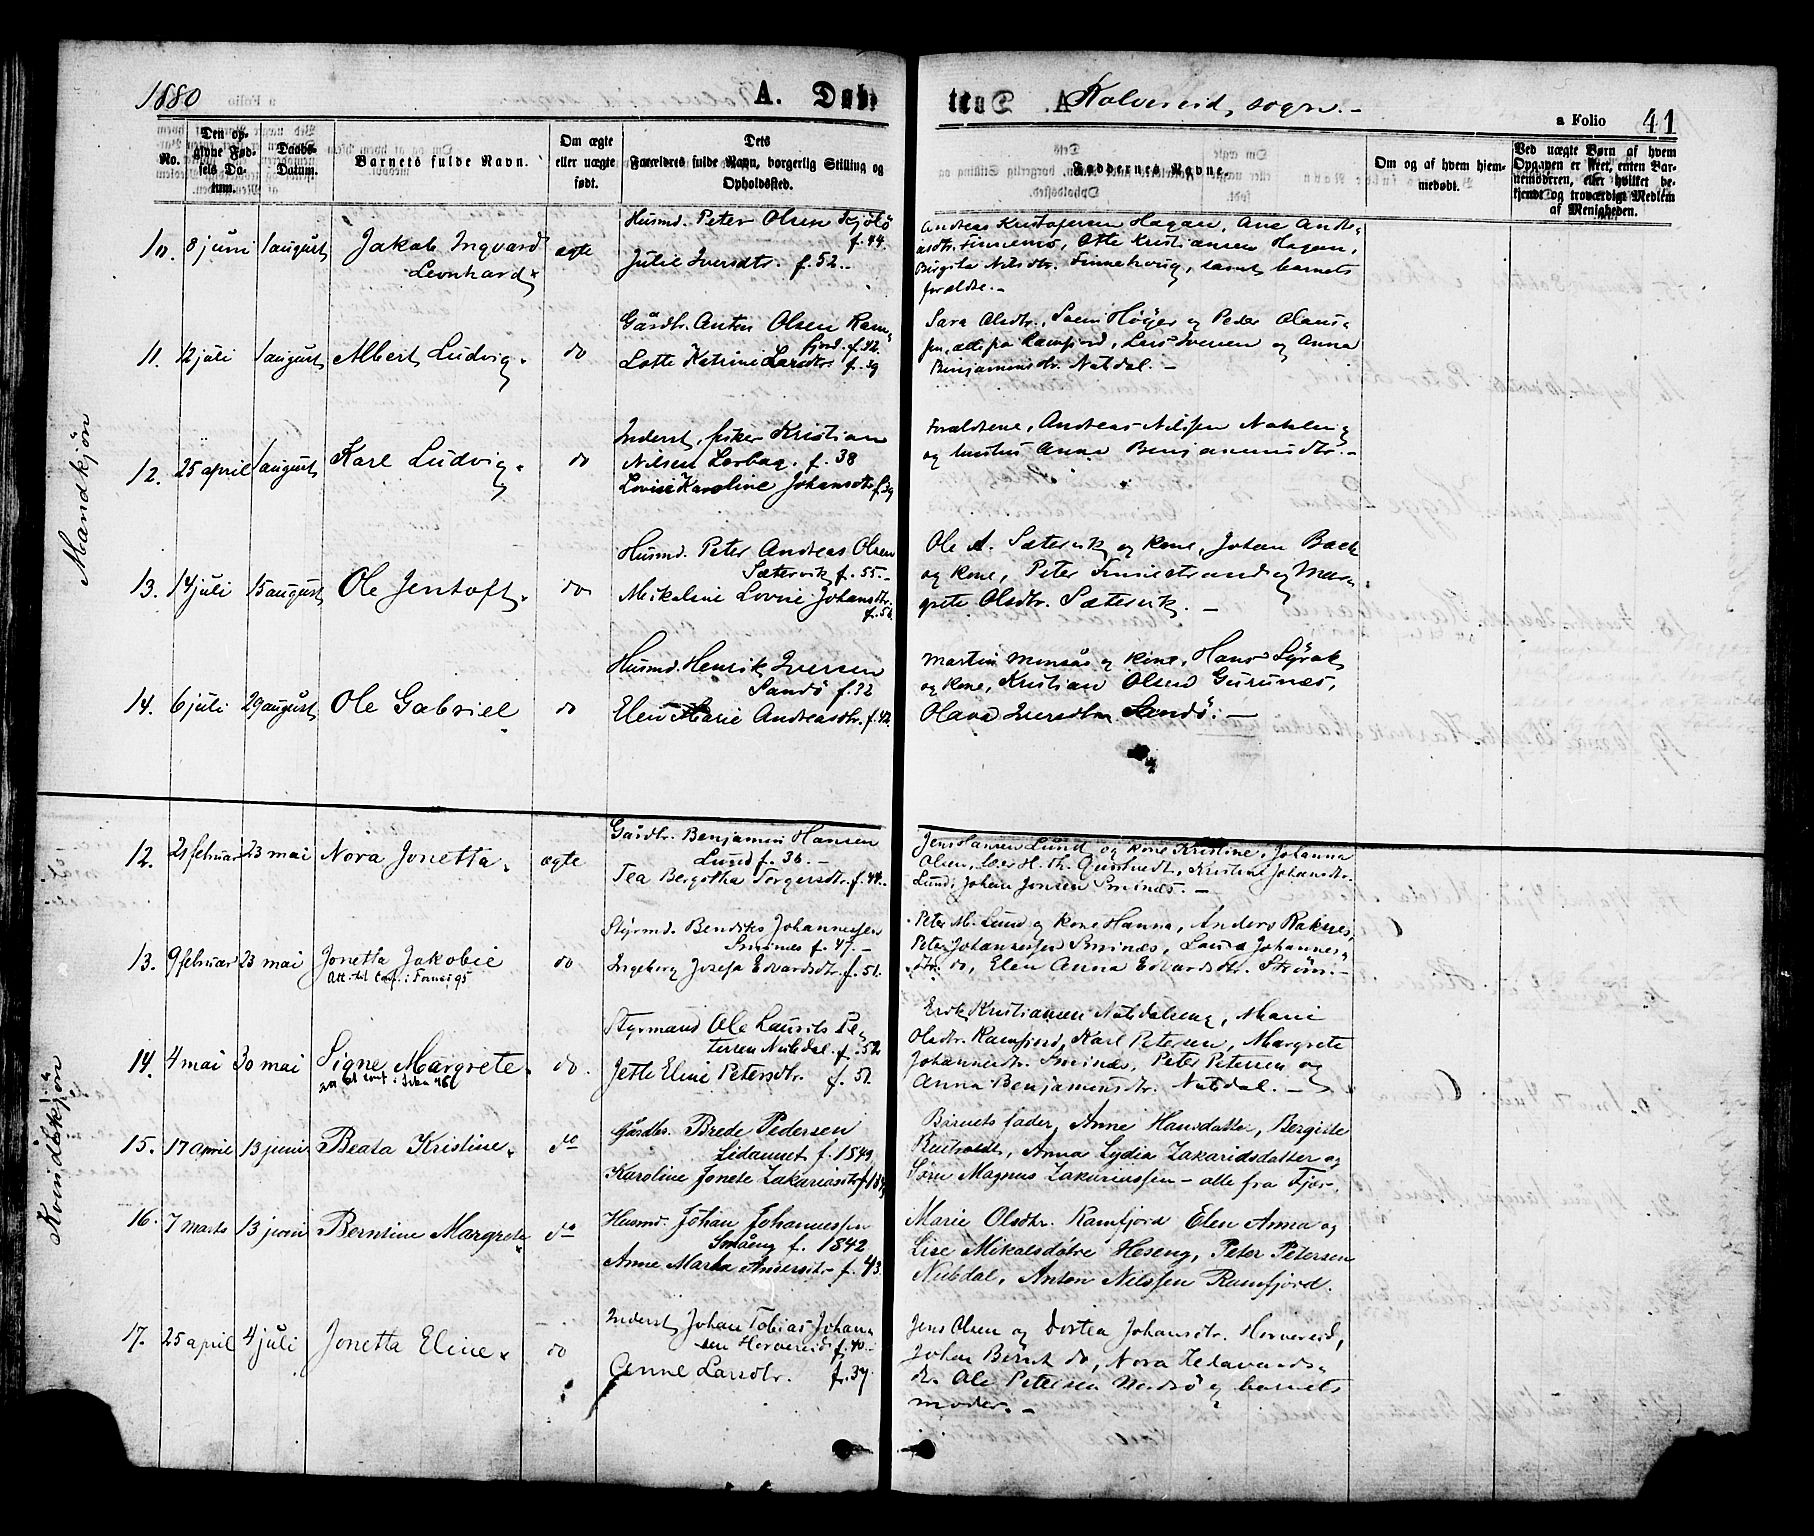 1880
A. Døbte
Kolvereid sogn. -
a Folio 41
No.
Den opgivne Fødsels Datum.
Daabs-Datum.
Barnets fulde Navn.
Om ægte eller uægte født.
Dets Forældres fulde Navn, borgerlig Stilling og Opholdssted.
Faddernes Navne.
Om og af hvem hjemmedøbt.
Ved uægte Børn af hvem Opgaven er skeet, enten Barnemoderen, eller hvilket bekjendt og troværdigt Medlem af Menigheden.
Mandkjøn
10. 8 juni 1 august Jakob Ingvard
Leonhard
ægte
Husmd. Peter Olsen
f. 44.
Julie Iversdtr. f. 52.
Andreas Kristofersen Hagan, Ane Ande-
asdtr. Finnemo, Otte Kristiansen Hagan,
Birgitte Nilsdtr. Finnehoug, samt barnets
forældre. -
11. 12 juli 1 august Albert Ludvig.
do
Gårdbr. Anton Olsen Ram-
fjord. f. 42.
Lotte Katrine Larsdtr. f. 39
Sara Olsdtr., Søren Høyer og Peder Olaus-
sen, alle fra Ramfjord, Iversen og Anna
Benjaminsdtr. Nubdal. -
12. 25 april 1 august Karl Ludvig.
do
Inderst, fisker Kristian
Nilsen f. 38
Lovise Karoline Johansdtr. f. 39
Forældrene, Andreas Nilssen
og hustru Anna Benjaminsdtr. -
13. 14 juli 15 august Ole Jentoft.
do
Husmd. Peter Andreas Olsen
Sætervik f. 55. -
Mikaline Lovise Johansdtr.
f. 56.
Ole A. Sætervik og kone, Johan Bach
og kone, Peter Finnestrand og Mar-
grete Olsdtr. Sætervik. -
14. 6 juli 29 august Ole Gabriel
do
Husmd. Henrik Iversen
Sandø f. 32
Elen Marie Andreasdtr. f. 42.
Martin Monsås og kone, Hans
og kone, Kristian Olsen
Olava Iversdtr. Sandø. -
Kvindekjøn
12. 21 februar 23 mai Nora Jonetta.
ægte
Gårdbr. Benjamin Hansen
Lund f. 36. -
Tea Bergitha Torgersdtr. f. 44.
Jens Hansen Lund og kone Kristine, Johanna
Olsen, Kristine Johansdtr.
Lund, Johan Jonsen Småness. -
13. 9 februar 23 mai Jonetta Jakobie
Att. til conf. i 95
do
Styrmd. Bendiks Johannessen
f. 47. -
Ingeborg Josefa Edvardsdtr. f. 51.
Peter M. Lund og kone Hanna, Anders
Peter Johannessen Laura Johannes-
dtr. do, Elen Anna Edvardsdtr. Strøm. -
14. 4 mai 30 mai Signe Margrete.
do.
Styrmand Ole Laurits Pe-
tersen Nubdal. f. 52
Jette Eline Petersdtr. f. 51.
Erik Kristiansen Marie
Olsdtr. Ramfjord, Karl Petersen, Margrete
Johannesdtr. Peter Petersen og
Anna Benjaminsdtr. Nubdal. -
15. 17 april 13 juni Beata Kristine.
do
Gårdbr. Brede Pedersen
f. 1849
Karoline Jonete Zakariasdtr.
Barnets fader, Anne Hansdatter, Bergitte
Anna Lydia Zakariasdatter og
Søren Magnus Zakariassen - alle fra
16. 7 marts 13 juni Berntine Margrete.
do
Husmd. Johan Johannessen
Småeng f. 1842
Anne Marta Andersdtr. f. 43.
Marie Olsdtr. Ramfjord Elen Anna og
Lise Mikalsdøtre Heseng, Peter Petersen
Nubdal, Anton Nilssen Ramfjord.
17. 25 april 4 juli Jonetta Eline.
do
Inderst Johan Tobias Johan-
sen Horvereid f. 40. -
Anne Larsdtr. f. 37.
Jens Olsen og Dortea Johansdtr. Horvereid,
Johan Bernt do, Nora
Ole Petersen og barnets
moder. -